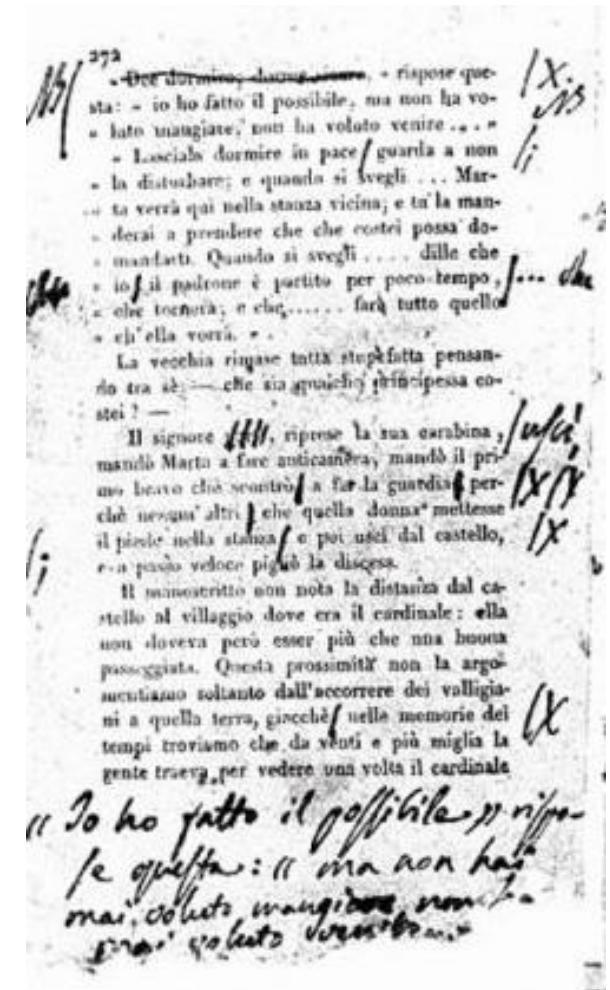 272
rispose que-
sta: « io ho fatto il possibile, ma non ha vo-
« luto mangiare, non ha voluto venire . . . . »
« Lasciala dormire in pace guarda a non
« la disturbare; e quando si svegli . . . Mar-
« ta verrà qui nella stanza vicina; e tu la man-
« derai a prendere che che costei possa do-
« mandarti. Quando si svegli . . . . dille che
« io il padrone è partito per poco tempo,
« che tornerà, e che, . . . . . . farà tutto quello
« ch'ella vorrà. » .
La vecchia rimase tutta stupefatta pensan-
do tra sè: — che sia qualche principessa co-
stei? —
Il signore , riprese la sua carabina, usci,
mandò Marta a fare anticamera, mandò il pri-
mo bravo che scontrò a far la guardia per-
chè nessun' altri che quella donna mettesse
il piede nella stanza e poi uscì dal castello,
e a passo veloce pigliò la discesa.
Il manoscritto non nota la distanza dal ca-
stello al villaggio dove era il cardinale: ella
non doveva però esser più che una buona
passeggiata. Questa prossimità non la argo-
mentiamo soltanto dall'accorrere dei valligia-
ni a quella terra, giacchè nelle memorie del
tempi troviamo che da venti e più miglia la
gente traeva per vedere una volta il cardinale
« Io ho fatto il possibile » rispo-
se questa: « ma non ha
mai voluto mangiare non ha
mai voluto venire...